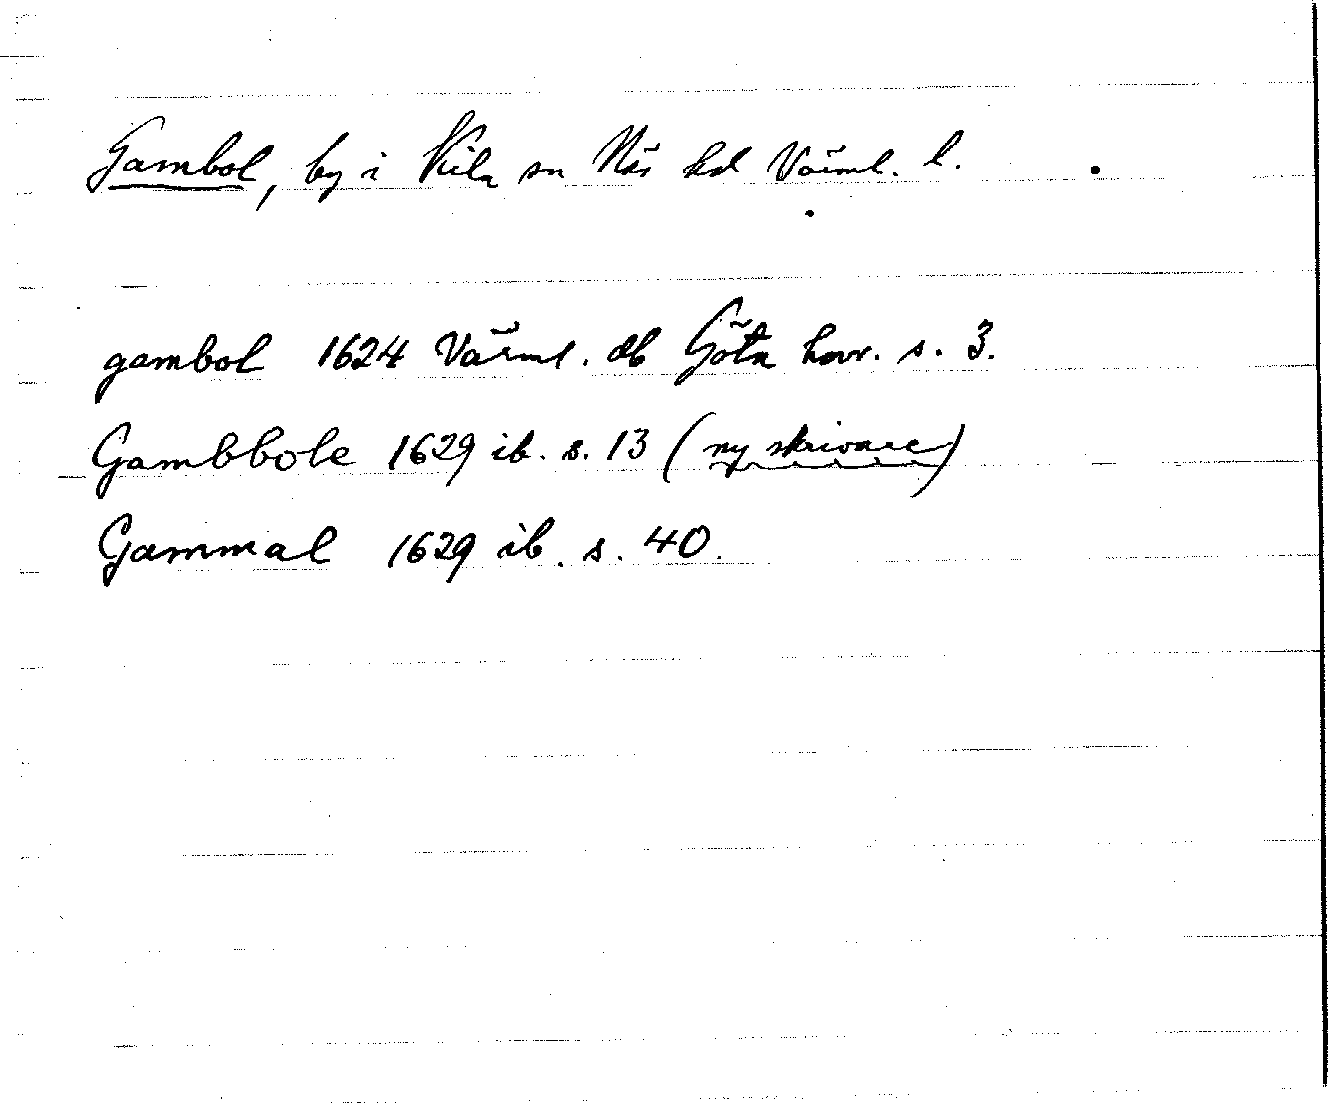 Gambol, by i Kila sn Näs hd Värml. l.
gambol 1624 Värml. db Göta hovr. s. 3.
Gambbole 1629 ib. s. 13 (ny skrivare)
Gammal 1629 ib. s. 40.